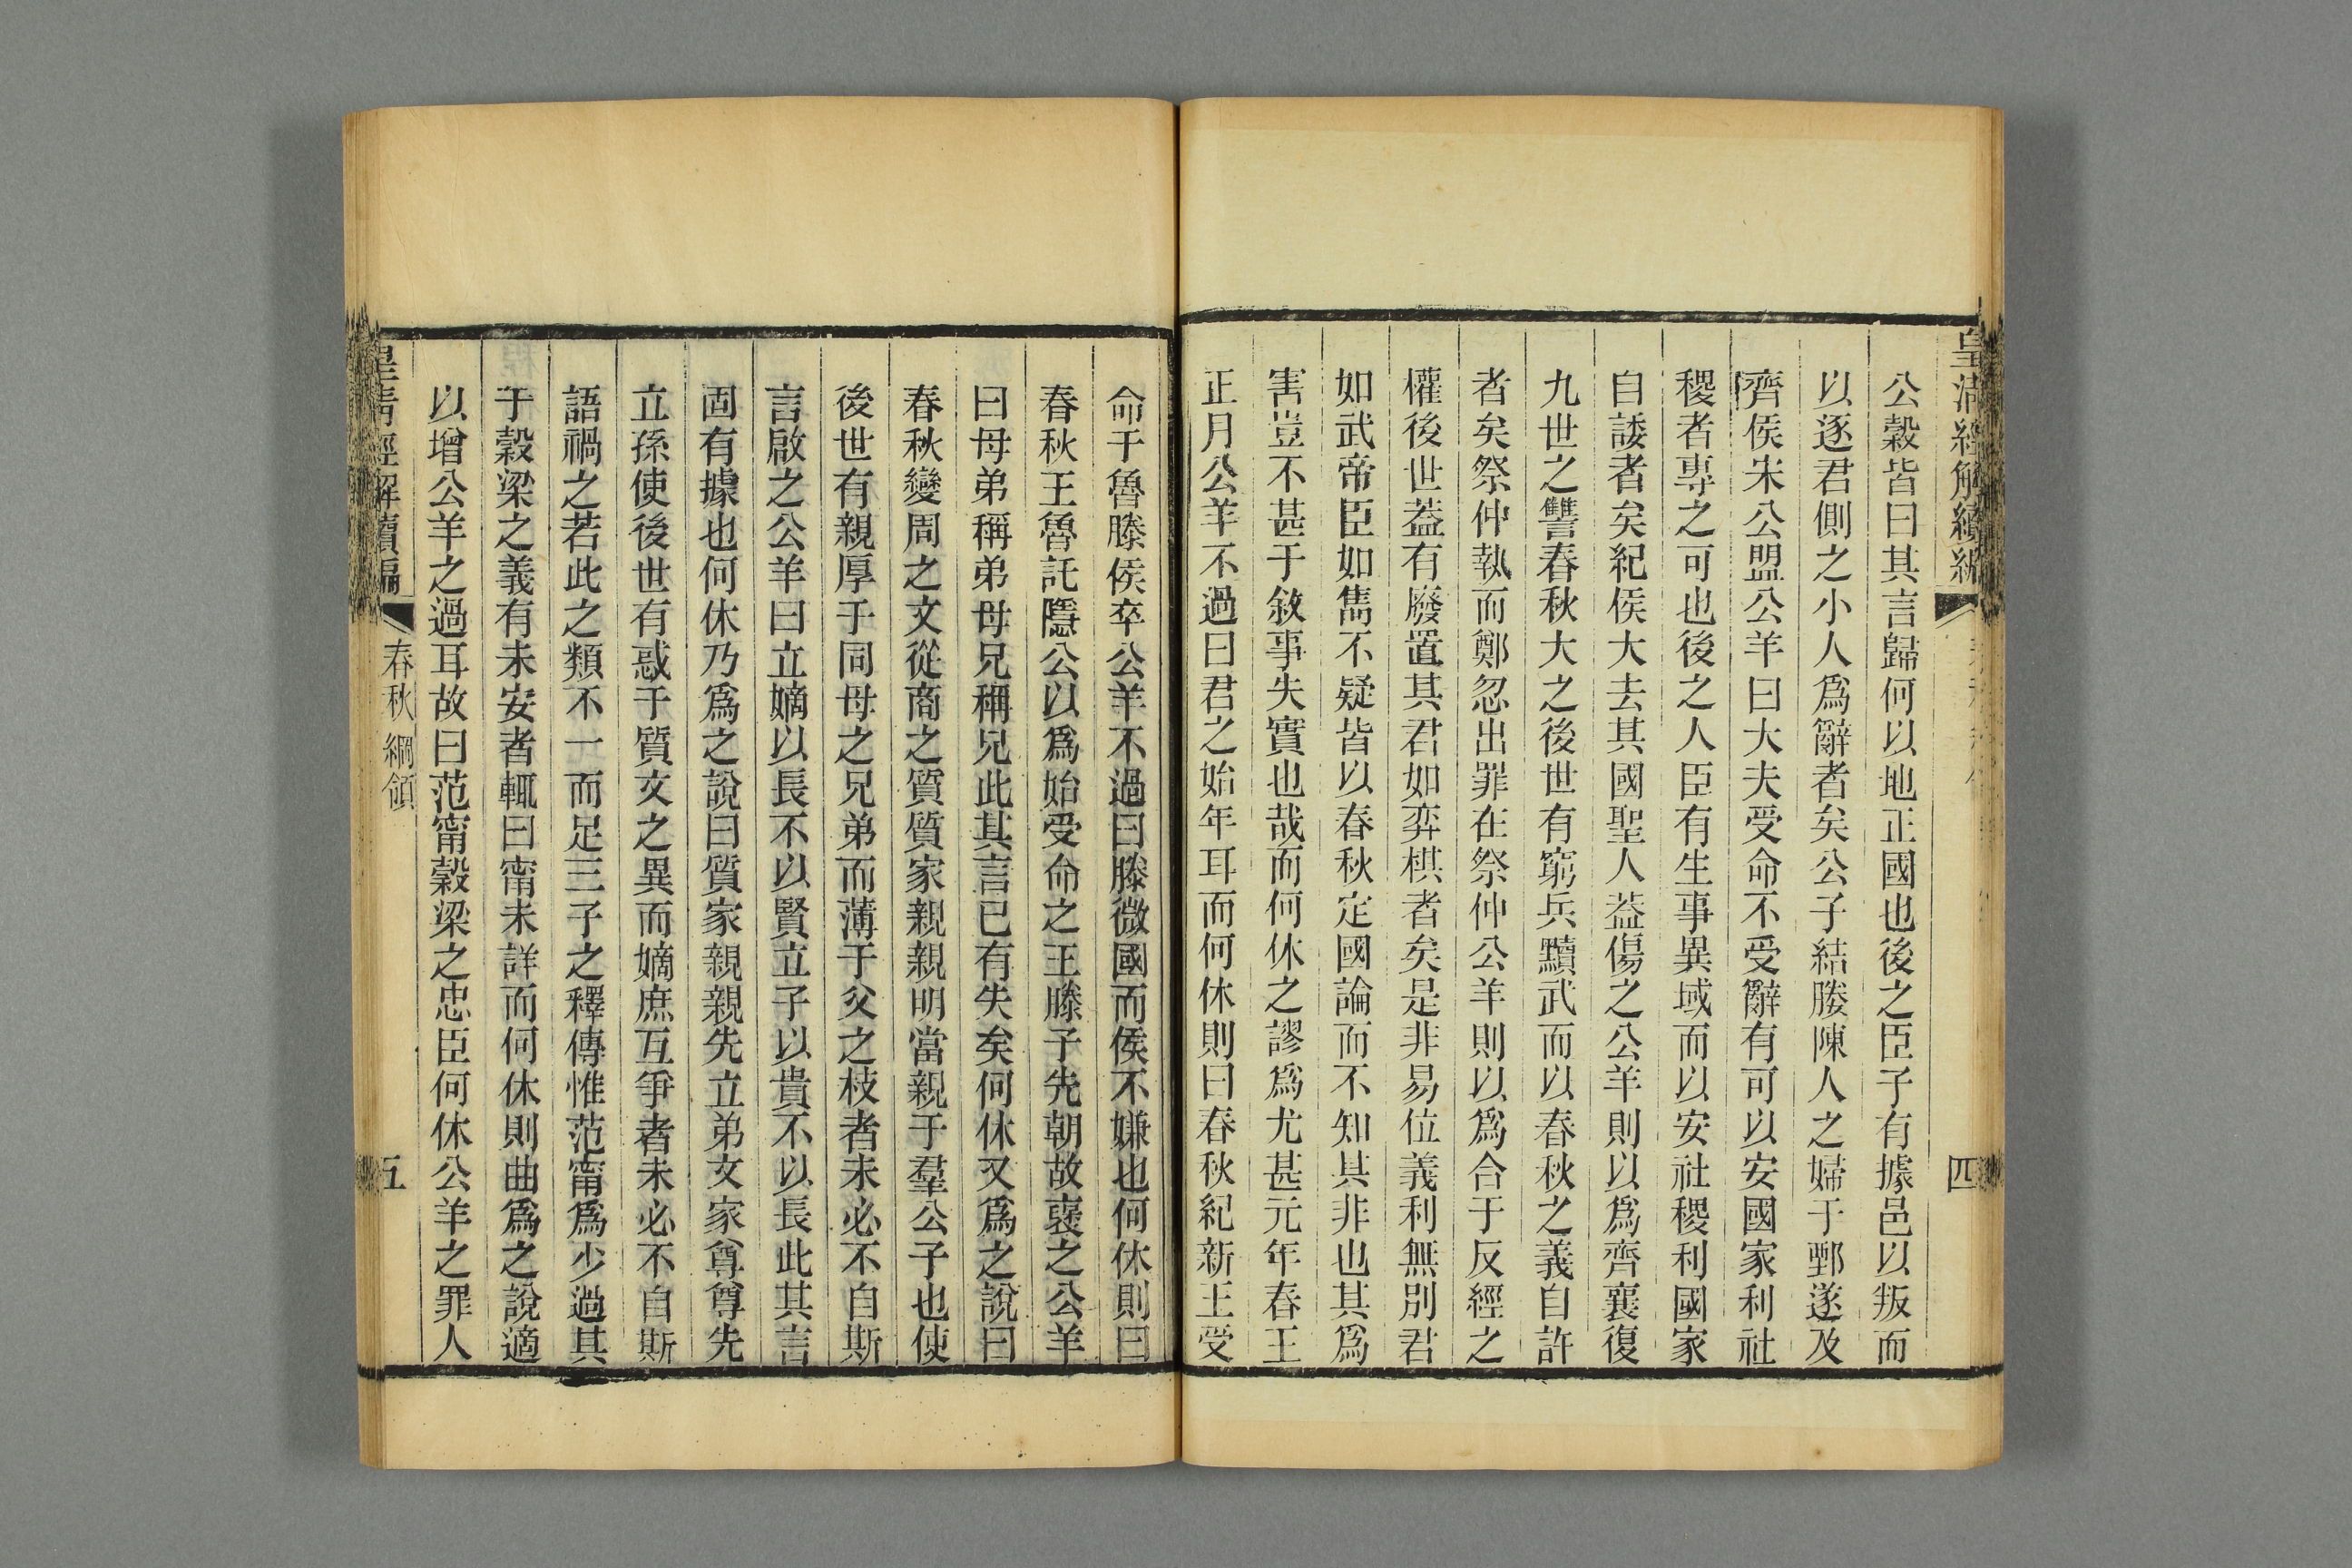 皇清經解續編
四
公縠皆曰其言歸何以地正國也後之臣子有據邑以叛而
以逐君側之小人爲辭者矣公子結媵陳人之婦于鄄遂及
齊侯宋公盟公羊曰大夫受命不受辭有可以安國家利社
稷者專之可也後之人臣有生事異域而以安社稷利國家
自諉者矣紀侯大去其國聖人葢傷之公羊則以爲齊襄復
九世之讐春秋大之後世有窮兵黷武而以春秋之義自許
者矣祭仲執而鄭忽出罪在祭仲公羊則以爲合于反經之
權後世葢有廢置其君如弈棋者矣是非易位義利無別君
如武帝臣如雋不疑皆以春秋定國論而不知其非也其爲
害豈不甚于敘事失實也哉而何休之謬爲尤甚元年春王
正月公羊不過曰君之始年耳而何休則曰春秋紀新王受
命于魯滕侯卒公羊不過曰滕微國而侯不嫌也何休則曰
春秋王魯託隱公以爲始受命之王滕子先朝故襃之公羊
曰母弟稱弟母兄稱兄此其言已有失矣何休又爲之說曰
春秋變周之文從商之質質家親親明當親于羣公子也使
後世有親厚于同母之兄弟而薄于父之枝者未必不自斯
言啟之公羊曰立嫡以長不以賢立子以貴不以長此其言
固有據也何休乃爲之說曰質家親親先立弟文家尊尊先
立孫使後世有惑于質文之異而嫡庶互爭者未必不自斯
語禍之若此之類不一而足三子之釋傳惟范甯爲少過其
于縠梁之義有未安者輒曰甯未詳而何休則曲爲之說適
以增公羊之過耳故曰范甯縠梁之忠臣何休公羊之罪人
皇清經解續編
春秋綱領
五